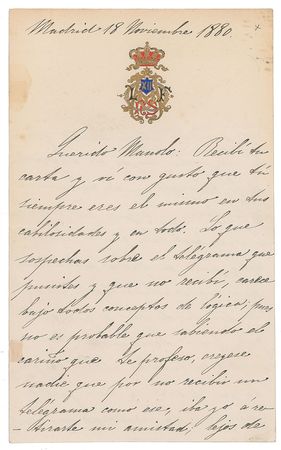 Madrid 18 Noviembre 1880
Querido Manolo: Recibí tu
carta y ví con gusto que tú
siempre eres el mismo en tus
cabilosidades y en todo. Lo que
sospechas sobre el telégrama que
pusistes y que no recibí, carece
bajo todos conceptos de lógica; pues
no es probable que sabiendo el
cariño que te profeso, creyese
nadie que por no recibir un
telégrama como ese, iba yo á re-
-tirarte mi amistad; lejos de